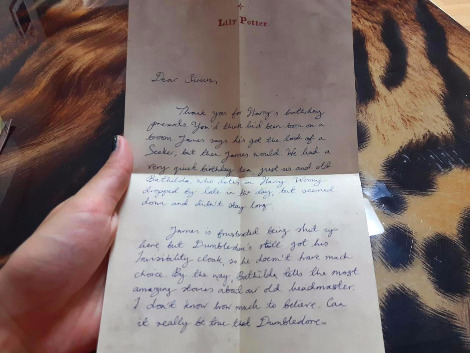 Lily Potter
Dear Sirius,
Thank you for Harry's birthday
present. You'd think he'd been born on a
broom. James says his got the look of a
Seeker, but then James would. We had a
very quiet birthday tea just us and old
Bathilda, who dotes on Harry. Wormy
dropped by late in the day, but seemed
down and didn't stay long.
James is frustrated being shut up
here but Dumbledore's still got his
Invisibility cloak, so he doesn't have much
choice. By the way, Bathilda tells the most
amazing stories about our old headmaster.
I don't know how much to believe. Can
it really be true that Dumbledore...